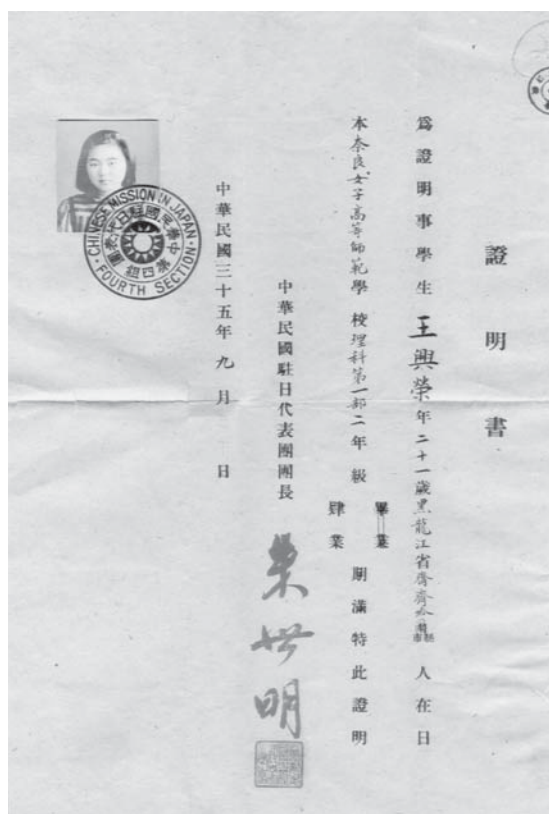 證明書
爲證明事學生王興榮年二十一歲黑龍江省齊齊哈爾市縣人在日
本奈良女子高等師範學校理科第一部二年級畢業肄業期滿特此證明
中華民國駐日代表團團長朱世明
中華民國三十五年九月 日
CHINESE MISSION IN JAPAN
FOURTH SECTION
中華民國駐日代表團
第四組